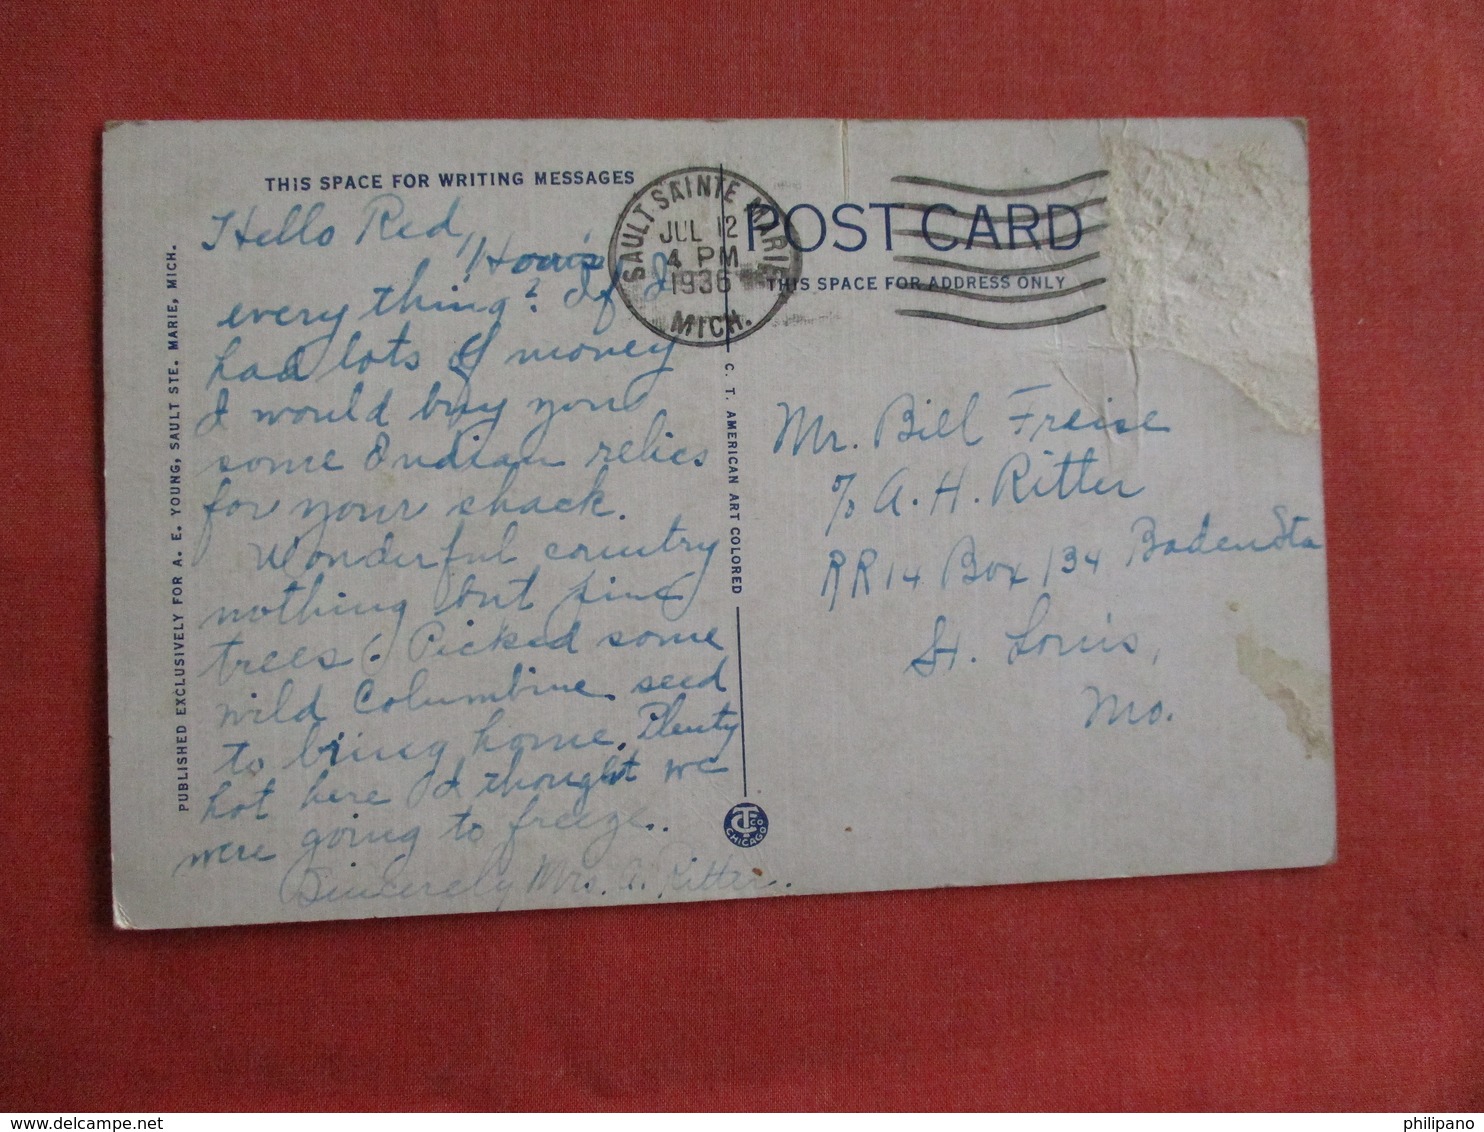 THIS SPACE FOR WRITING MESSAGES
Hello Red,
How's
every thing? If I
had lots of money
I would buy you
some Indian relics
for your shack.
Wonderful country
nothing but pine
trees. Picked some
wild Columbine seed
to bring home. Plenty
hot here I thought we
were going to freeze.
Sincerely Mrs. A. Ritter.
PUBLISHED EXCLUSIVELY FOR A. E. YOUNG, SAULT STE. MARIE, MICH.
SAULT SAINTE MARIE
JUL 12
4 PM
1936
MICH.
POST CARD
THIS SPACE FOR ADDRESS ONLY
C. T. AMERICAN ART COLORED
CT CO
CHICAGO
Mr. Bill Freise
% A. H. Ritter
RR14 Box 134 Baden Sta
St. Louis,
Mo.
http://www.delcampe.net
philipano